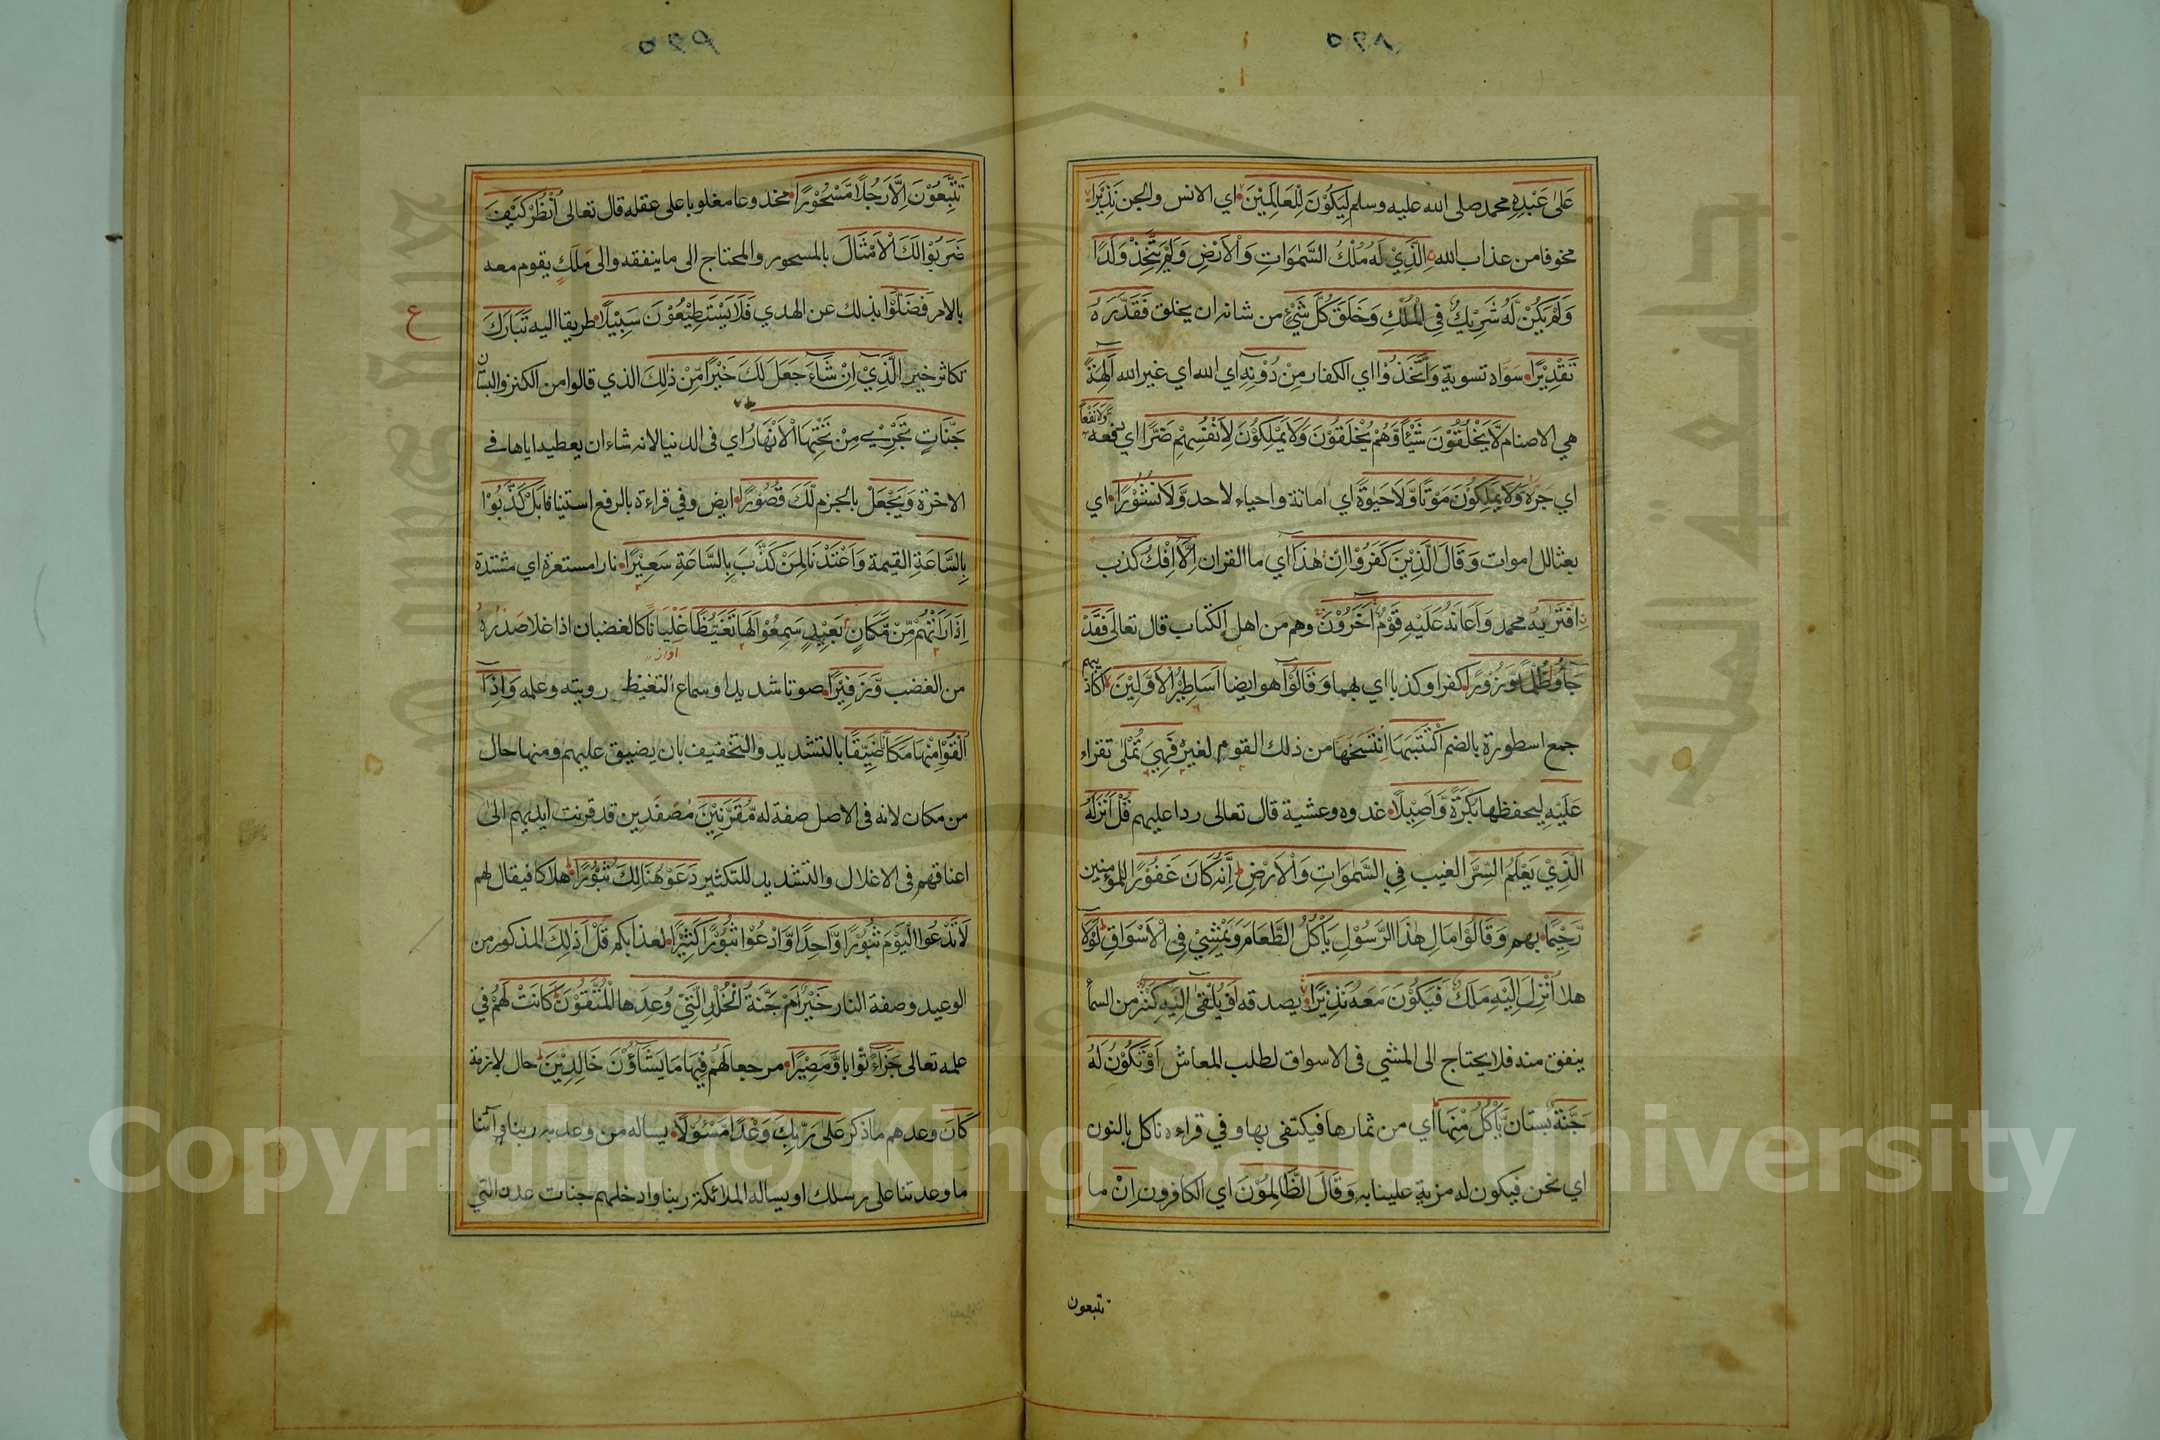 عَلٰى عَبْدِهٖ محمد صلى الله عليه وسلم لِيَكُوْنَ لِلْعَالَمِيْنَ اي الانس والجن نَذِيْرًا
مخوفا من عذاب الله الَّذِيْ لَهٗ مُلْكُ السَّمٰوَاتِ وَالْاَرْضِ وَلَمْ يَتَّخِذْ وَلَدًا
وَلَمْ يَكُنْ لَّهٗ شَرِيْكٌ فِي الْمُلْكِ وَخَلَقَ كُلَّ شَيْءٍ من شانه ان يخلق فَقَدَّرَهٗ
تَقْدِيْرًا سواه تسوية وَاتَّخَذُوْا اي الكفار مِنْ دُوْنِهٖ اي الله اي غير الله اٰلِهَةً
هي الاصنام لَّا يَخْلُقُوْنَ شَيْئًا وَّهُمْ يُخْلَقُوْنَ وَلَا يَمْلِكُوْنَ لِاَنْفُسِهِمْ ضَرًّا اي دفعه وَّلَا نَفْعًا
اي جره وَلَا يَمْلِكُوْنَ مَوْتًا وَّلَا حَيٰوةً اي اماتة واحياء لاحد وَّلَا نُشُوْرًا اي
بعثا للاموات وَقَالَ الَّذِيْنَ كَفَرُوْا اِنْ هٰذَا اي ما القران اِلَّا اِفْكٌ كذب
افْتَرٰىهُ محمد وَاَعَانَهٗ عَلَيْهِ قَوْمٌ اٰخَرُوْنَ وهم من اهل الكتاب قال تعالى فَقَدْ
جَاءُوْ ظُلْمًا وَّزُوْرًا كفرا وكذبا اي بهما وَقَالُوْا هو ايضا اَسَاطِيْرُ الْاَوَّلِيْنَ اكاذيبهم
جمع اسطورة بالضم اكْتَتَبَهَا انتسخها من ذلك القوم لغيره فَهِيَ تُمْلٰى تقراء
عَلَيْهِ ليحفظها بُكْرَةً وَّاَصِيْلًا غدوه وعشية قال تعالى ردا عليهم قُلْ اَنْزَلَهُ
الَّذِيْ يَعْلَمُ السِّرَّ الغيب فِي السَّمٰوَاتِ وَالْاَرْضِ اِنَّهٗ كَانَ غَفُوْرًا للمؤمنين
رَّحِيْمًا بهم وَقَالُوْا مَالِ هٰذَا الرَّسُوْلِ يَاْكُلُ الطَّعَامَ وَيَمْشِيْ فِي الْاَسْوَاقِ لَوْلَا
هلا اُنْزِلَ اِلَيْهِ مَلَكٌ فَيَكُوْنَ مَعَهٗ نَذِيْرًا يصدقه اَوْ يُلْقٰى اِلَيْهِ كَنْزٌ من السماء
ينفق منه فلا يحتاج الى المشي فى الاسواق لطلب المعاش اَوْ تَكُوْنُ لَهٗ
جَنَّةٌ بستان يَّاْكُلُ مِنْهَا اي من ثمارها فيكتفى بها وفي قراءه ناكل بالنون
اي نحن فيكون له مزية علينا به وَقَالَ الظَّالِمُوْنَ اي الكافرون اِنْ ما
تتبعون
تَتَّبِعُوْنَ اِلَّا رَجُلًا مَّسْحُوْرًا مخدوعا مغلوبا على عقله قال تعالى اُنْظُرْ كَيْفَ
ضَرَبُوْا لَكَ الْاَمْثَالَ بالمسحور والمحتاج الى ما ينفقه والى مَلَكٍ يقوم معه
بالامر فَضَلُّوْا بذلك عن الهدي فَلَا يَسْتَطِيْعُوْنَ سَبِيْلًا طريقا اليه تَبَارَكَ
ع
تكاثر خير الَّذِيْ اِنْ شَاءَ جَعَلَ لَكَ خَيْرًا مِّنْ ذٰلِكَ الذي قالوا من الكنز والبستان
جَنَّاتٍ تَجْرِيْ مِنْ تَحْتِهَا الْاَنْهَارُ اي فى الدنيا لانه شاء ان يعطيه اياها في
الاخرة وَيَجْعَلْ بالجزم لَّكَ قُصُوْرًا ايض وفي قراءة بالرفع استينافا بَلْ كَذَّبُوْا
بِالسَّاعَةِ القيمة وَاَعْتَدْنَا لِمَنْ كَذَّبَ بِالسَّاعَةِ سَعِيْرًا نارا مستعرة اي مشتدة
اِذَا رَاَتْهُمْ مِّنْ مَّكَانٍ بَعِيْدٍ سَمِعُوْا لَهَا تَغَيُّظًا غليانا كالغضبان اذا غلا صدره
اواز
من الغضب وَّزَفِيْرًا صوتا شديدا وسماع التغيظ رويته وعلمه وَاِذَا
اُلْقُوْا مِنْهَا مَكَانًا ضَيِّقًا بالتشديد والتخفيف بان يضيق عليهم ومنها حال
من مكان لانه فى الاصل صفة له مُّقَرَّنِيْنَ مصفدين قد قرنت ايديهم الى
اعناقهم فى الاغلال والتشديد للتكثير دَعَوْا هُنَالِكَ ثُبُوْرًا هلاكا فيقال لهم
لَا تَدْعُوا الْيَوْمَ ثُبُوْرًا وَّاحِدًا وَّادْعُوْا ثُبُوْرًا كَثِيْرًا لعذابكم قُلْ اَذٰلِكَ المذكور من
الوعيد وصفة النار خَيْرٌ اَمْ جَنَّةُ الْخُلْدِ الَّتِيْ وُعِدَ ها الْمُتَّقُوْنَ كَانَتْ لَهُمْ في
علمه تعالى جَزَاءً ثوابا وَّمَصِيْرًا مرجعا لَهُمْ فِيْهَا مَا يَشَاءُوْنَ خَالِدِيْنَ حال لازمة
كَانَ وعدهم ما ذكر عَلٰى رَبِّكَ وَعْدًا مَّسْئُوْلًا يساله من وعد به ربنا واتنا
ما وعدتنا على رسلك او يساله الملائكة ربنا وادخلهم جنات عدن التي
Copyright © King Saud University